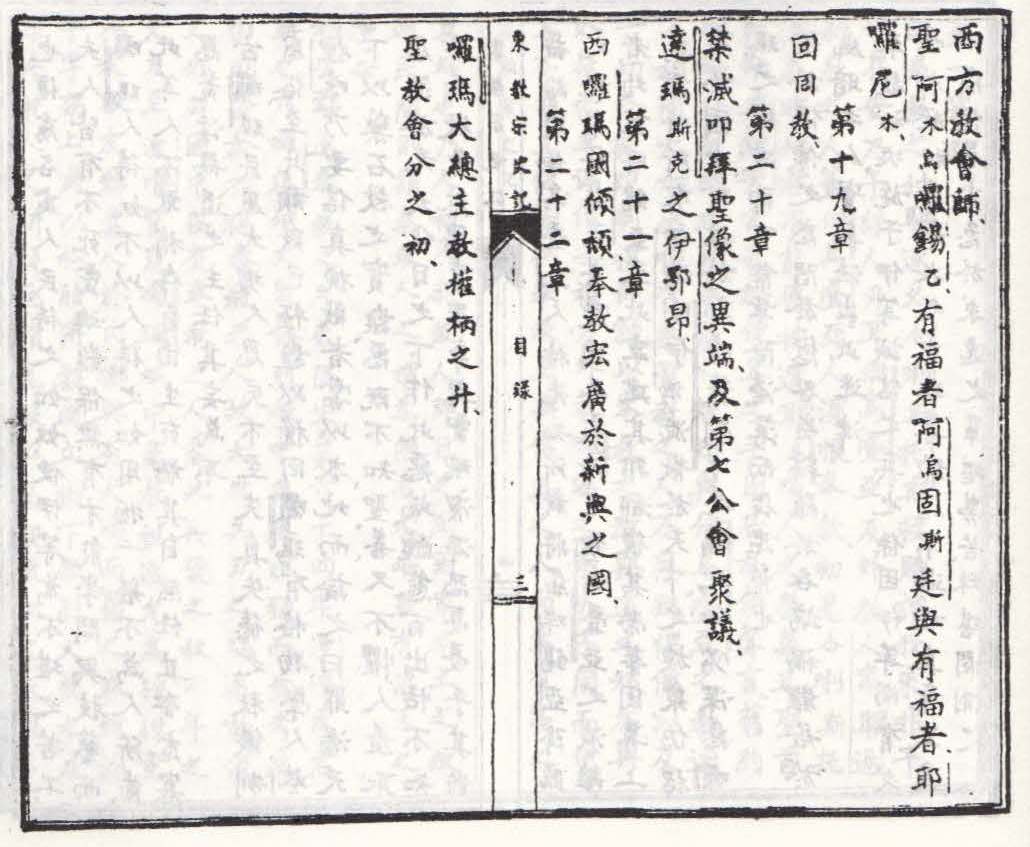 西方教會師、
聖阿木烏囉錫乙、有福者阿烏固斯廷與有福者、耶
囉尼木、
第十九章
回回教、
第二十章
禁滅叩拜聖像之異端、及第七公會聚議、
達瑪斯克之伊鄂昂、
第二十一章
西囉瑪國傾頹、奉教宏廣於新興之國、
第二十二章
東教宗史記
目錄
三
囉瑪大總主教權柄之升、
聖教會分之初、